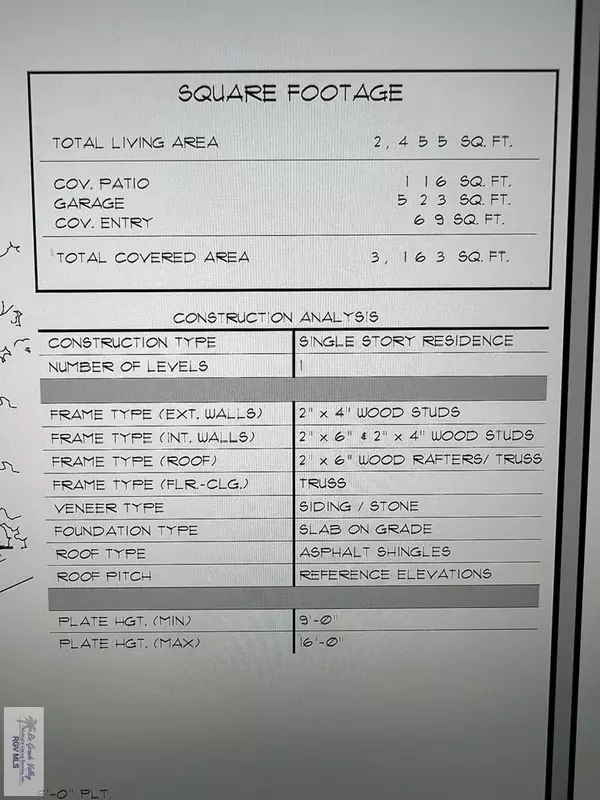 SQUARE FOOTAGE
TOTAL LIVING AREA 2,455 SQ. FT.
COV. PATIO 116 SQ. FT.
GARAGE 523 SQ. FT.
COV. ENTRY 69 SQ. FT.
TOTAL COVERED AREA 3,163 SQ. FT.
CONSTRUCTION ANALYSIS
CONSTRUCTION TYPE SINGLE STORY RESIDENCE
NUMBER OF LEVELS 1
FRAME TYPE (EXT. WALLS) 2" x 4" WOOD STUDS
FRAME TYPE (INT. WALLS) 2" x 6" & 2" x 4" WOOD STUDS
FRAME TYPE (ROOF) 2" x 6" WOOD RAFTERS/ TRUSS
FRAME TYPE (FLR.-CLG.) TRUSS
VENEER TYPE SIDING / STONE
FOUNDATION TYPE SLAB ON GRADE
ROOF TYPE ASPHALT SHINGLES
ROOF PITCH REFERENCE ELEVATIONS
PLATE HGT. (MIN) 9'-0"
PLATE HGT. (MAX) 16'-0"
Rio Grande Valley
RGV MLS
'-0" PLT.